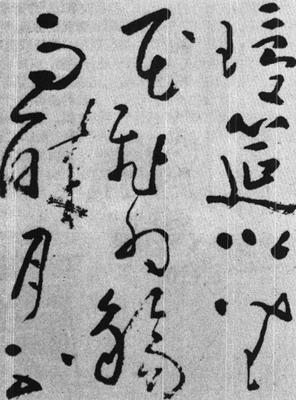 瓊筵以坐
花飛羽觴
而醉月不